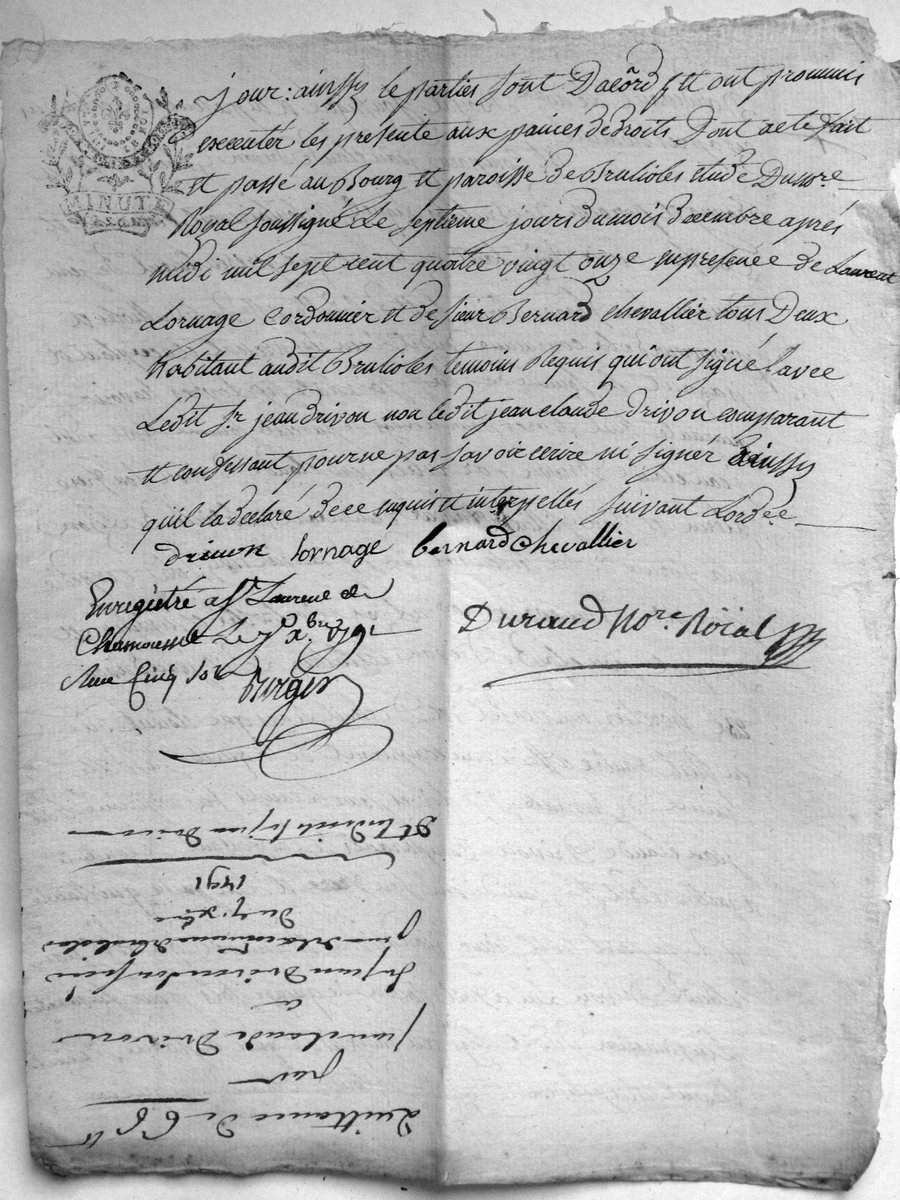 MINUTE
jour: ainssy le parties sont Dacôrd Et ont prommis
executér les presente aux paines de droits Dont acte fait
et passé au Bourg et paroisse de Brulioles etude Du no.re
Royal soussigné le septieme jours du mois Decembre aprés
midi mil sept cent quatre vingt onze en presence de Laurent
Lornage Cordonnier et de sieur Bernard chevallier tous Deux
habitant audit Brulioles temoins Requis qui ont signé avec
Ledit Sr. jean drivon non ledit jean claude drivon comparant
et confessant pour ne pas savoir ecrire ni signer Ainssy
quil la declaré de ce enquis et interpellés suivant Lord.ce
drivon lornage bernard chevallier
Enregistré a St Laurent de
Chamousset Le 7 Xbre 1791
Durand No.re Roïal
Recu Cinq sols
1791
Du 7 Xbre
jean Drivon son frere
a
jean claude Drivon
par
Quittance de 66 ll